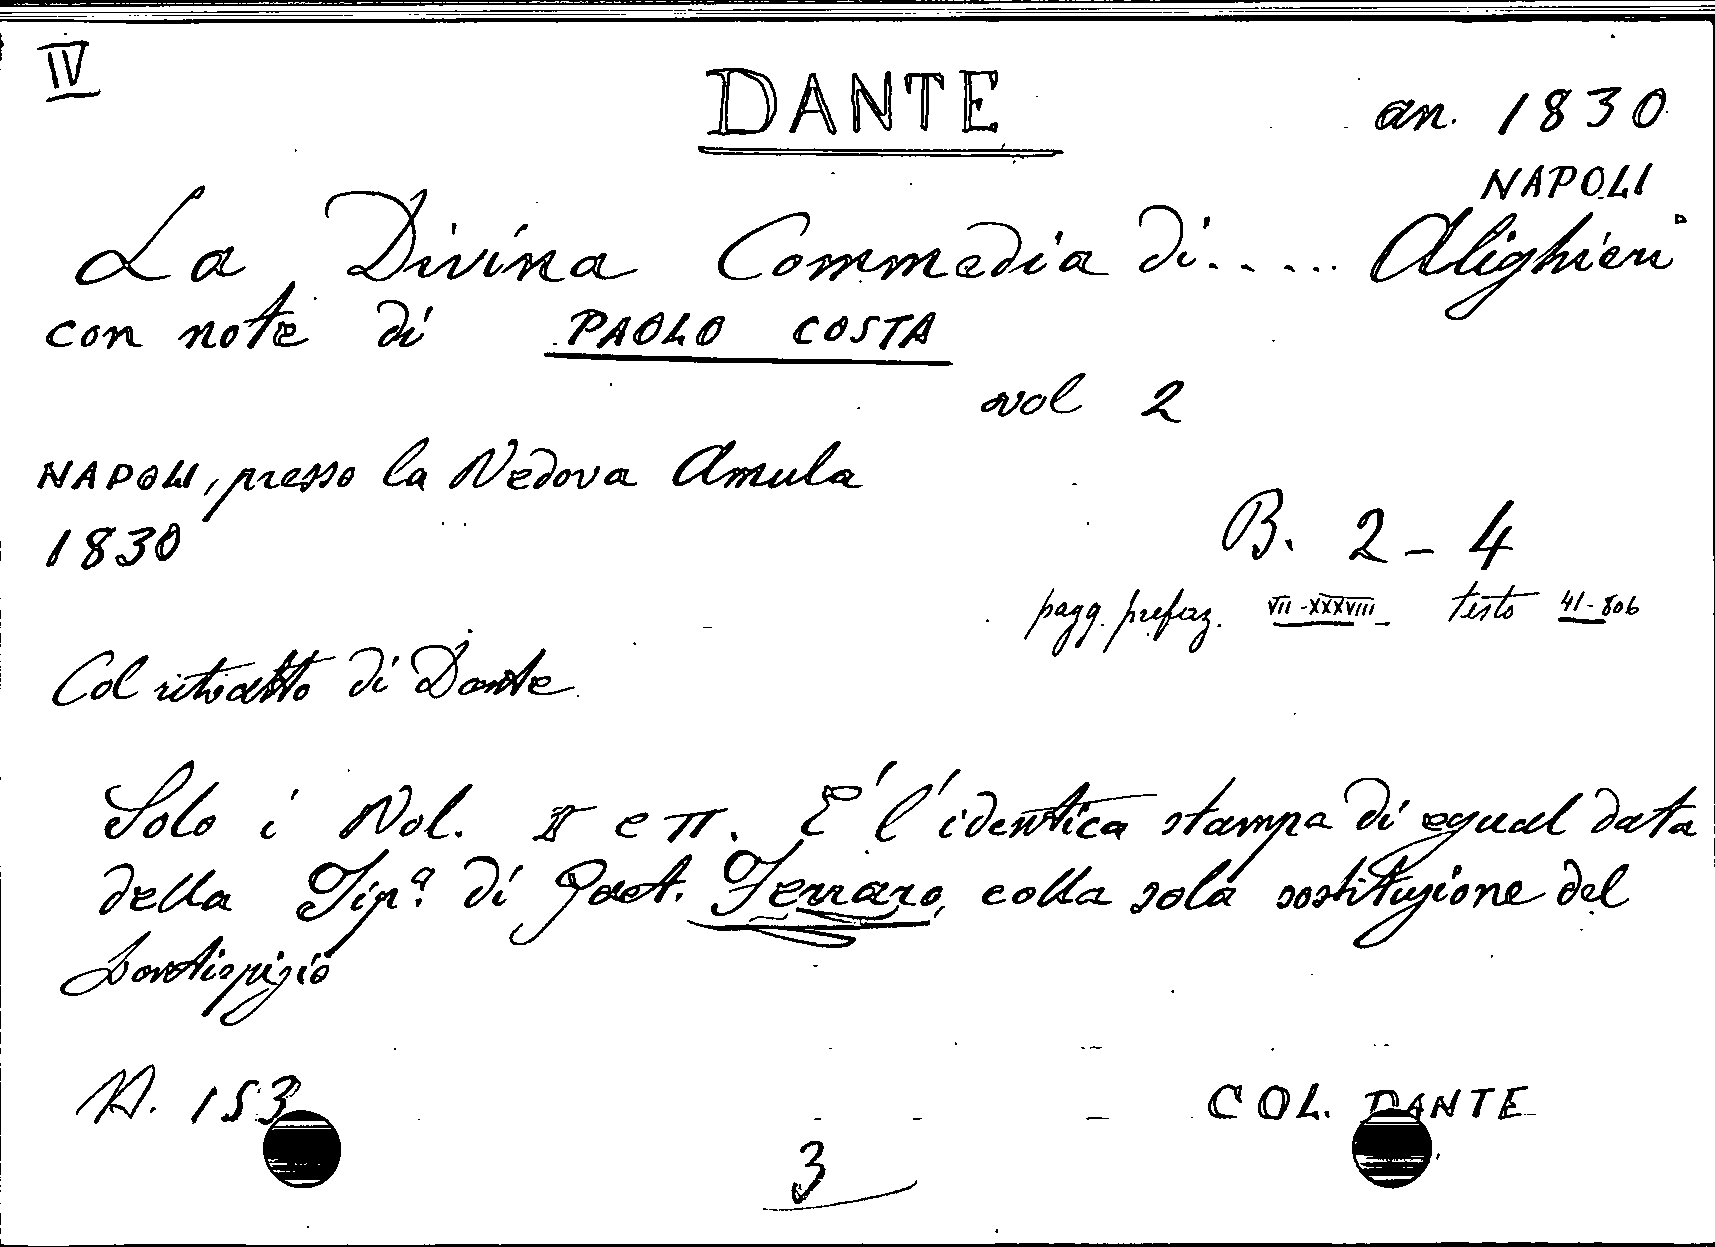 IV
DANTE
an. 1830
NAPOLI
La Divina Commedia di..... Alighieri
con note di PAOLO COSTA
vol 2
NAPOLI, presso la Vedova Amula
1830
B. 2-4
pagg. prefaz. VII-XXXVIII testo 41-806
Col ritratto di Dante
Solo i Vol. I e II. E' l'identica stampa di egual data
della Tip.ª di Gaet. Ferraro, colla sola sostituzione del
frontispizio
N. 153
COL. DANTE
3